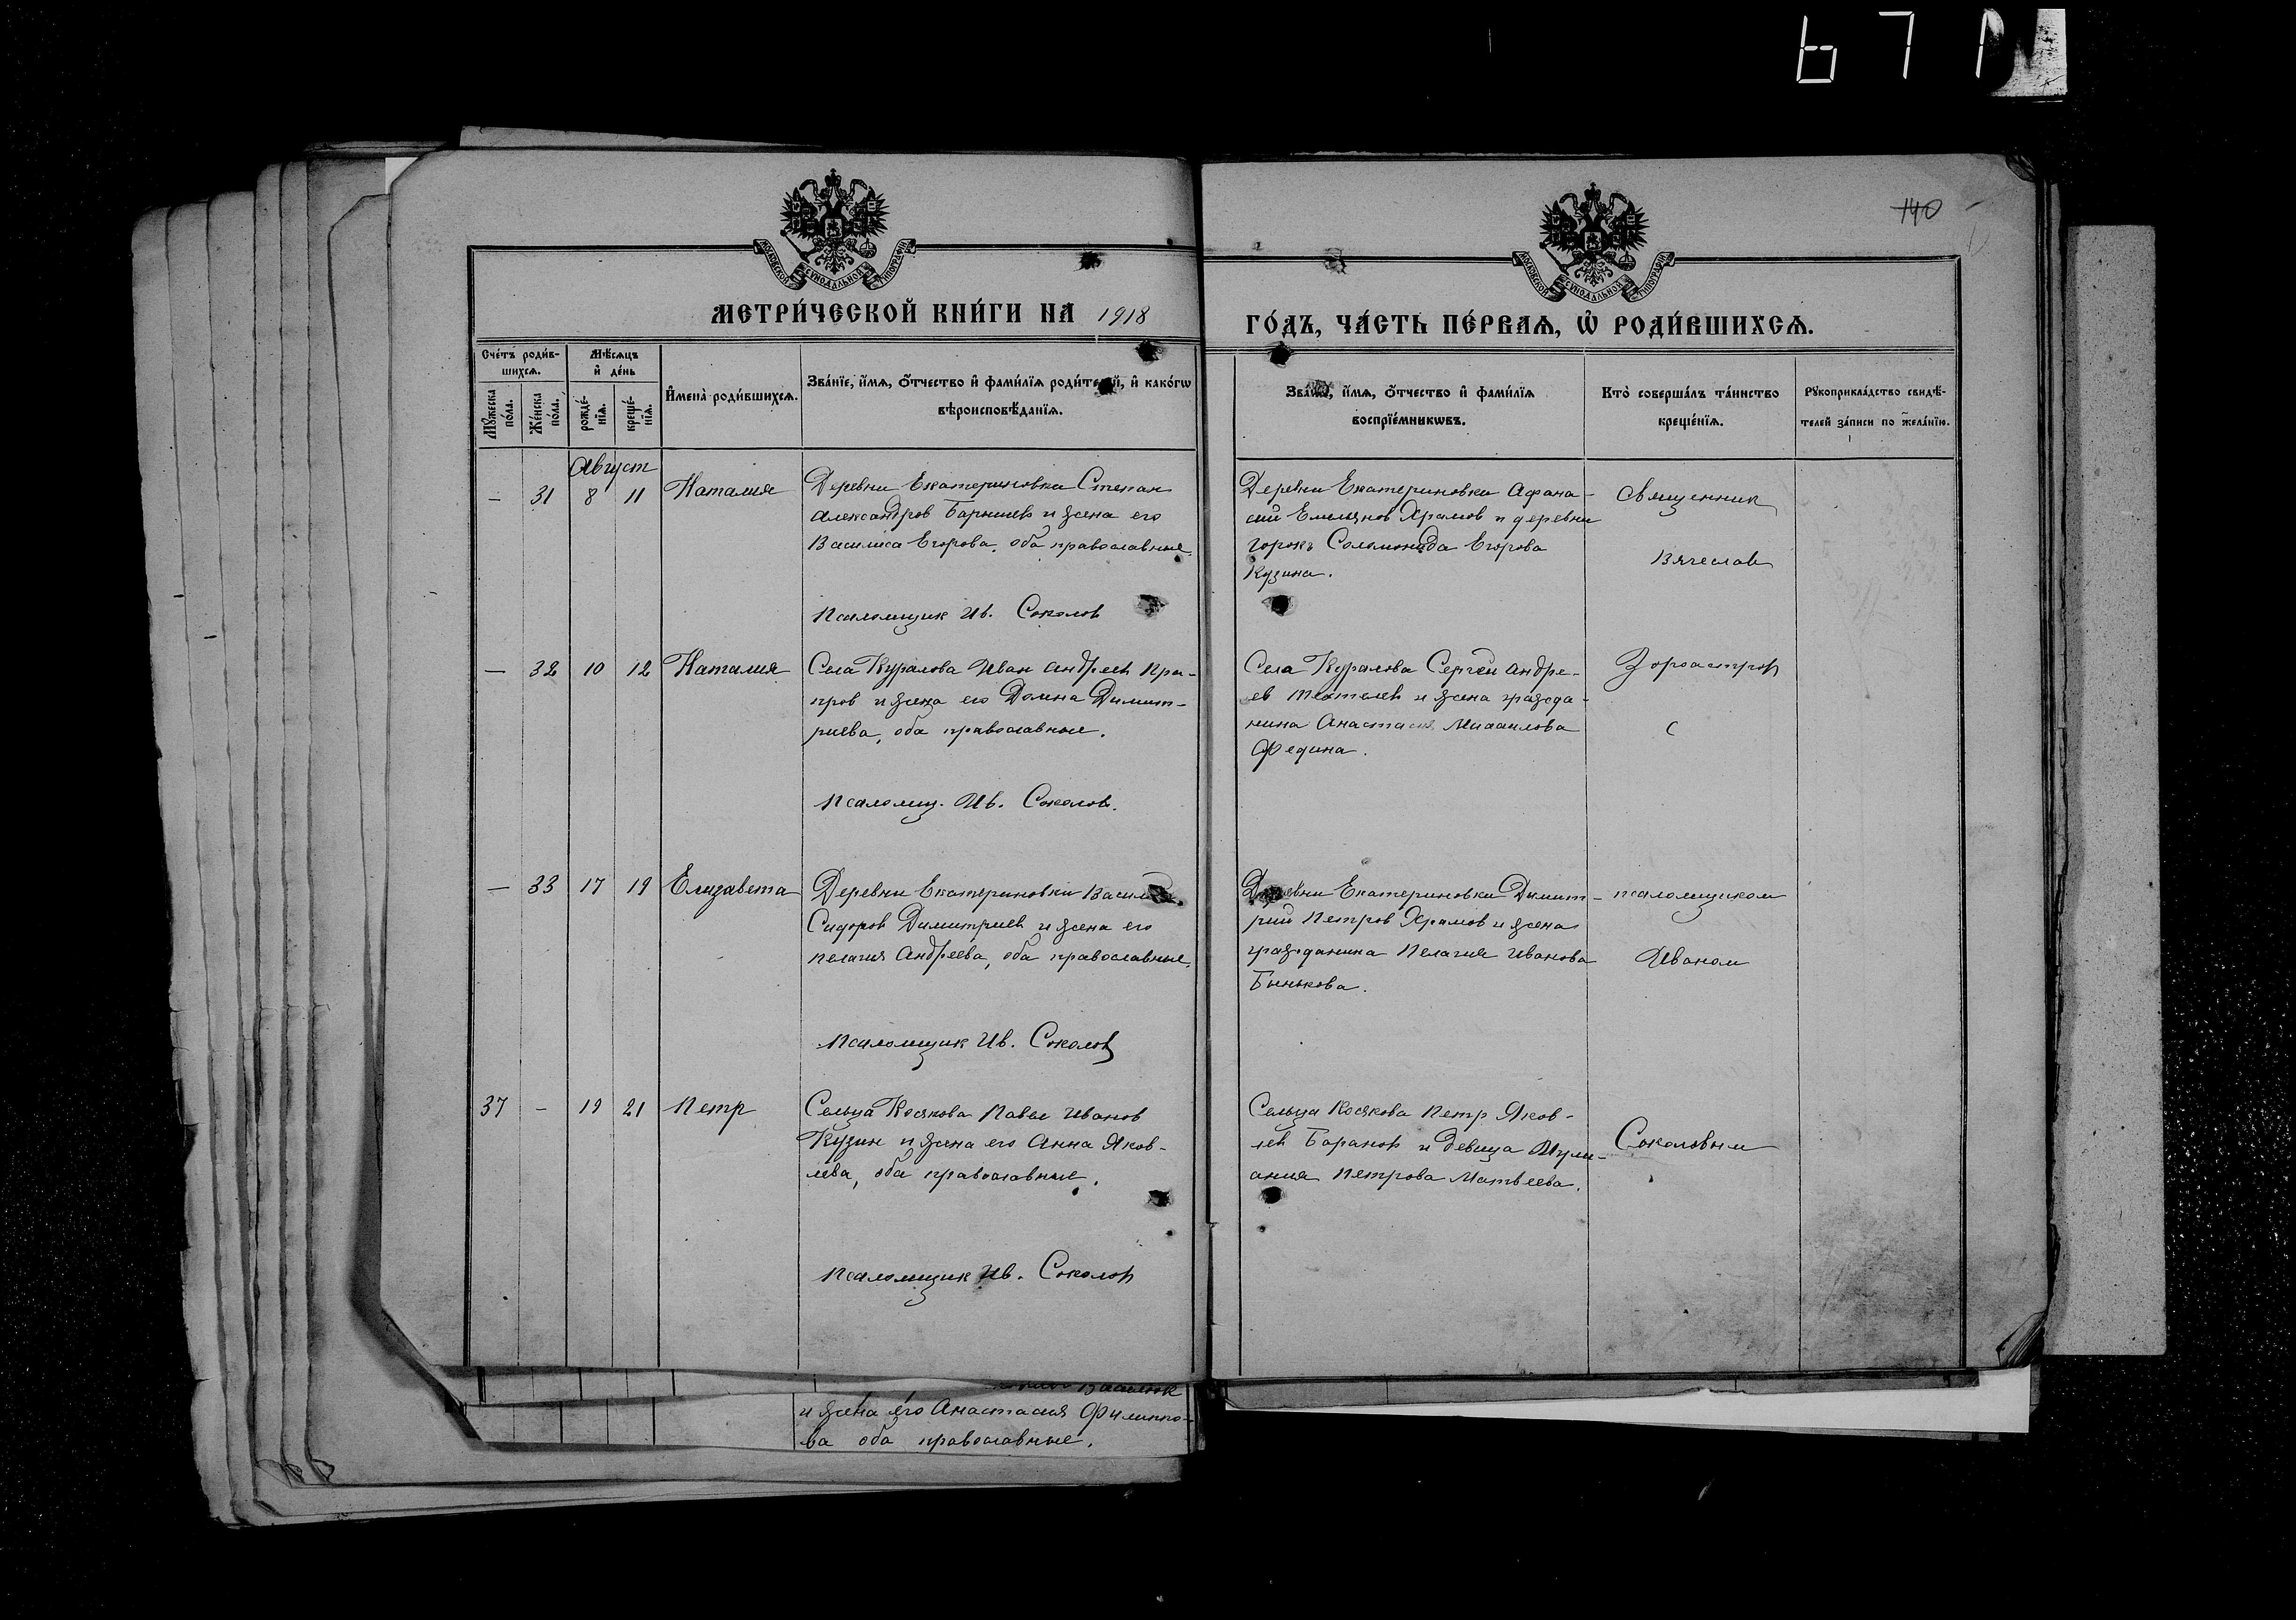 671
140
МОСКОВСКОЙ СѴНОДАЛЬНОЙ ТИПОГРАФІИ
МОСКОВСКОЙ СѴНОДАЛЬНОЙ ТИПОГРАФІИ
МЕТРИ́ЧЕСКОЙ КНИ́ГИ НА 1918
ГО́ДЪ, ЧА́СТЬ ПЕ́РВАѦ, Ѽ РОДИ́ВШИХСѦ.
Сче́тъ роди́в-
шихсѧ.
Мꙋ́жеска
по́ла.
Же́нска
по́ла.
Мѣ́сѧцъ
и҆ де́нь
рожде́-
нїѧ.
креще́-
нїѧ.
И҆мена̀ роди́вшихсѧ.
Зва́нїе, и҆́мѧ, ѻ҆́тчество и҆ фами́лїѧ роди́телей, и҆ како́гѡ
вѣроисповѣ́данїѧ.
Зва́нїе, и҆́мѧ, ѻ҆́тчество и҆ фами́лїѧ
воспрїе́мникѡвъ.
Кто̀ соверша́лъ та́инство
креще́нїѧ.
Рꙋкоприкла́дство свидѣ́-
телей за́писи по жела́нїю.
Август
- 31 8 11 Наталия
Деревни Екатериновки Степан
Александров Барышев и жена его
Василиса Егорова, оба православные.
Псаломщик Ив. Соколов
Деревни Екатериновки Афана-
сий Емельянов Храмов и деревни
Горокъ Соломонида Егорова
Кузина.
Священник
Вячеслав
- 32 10 12 Наталия
Села Куралова Иван Андреев
и жена его Домна Димит-
риева, оба православные.
Псаломщ. Ив. Соколов.
Села Куралова Сергей Андре-
ев и жена гражда-
нина Анастасия Михаилова
Федина.
Зороастров
с
- 33 17 19 Елизавета
Деревни Екатериновки Василий
Сидоров Димитриев и жена его
Пелагия Андреева, оба православные.
Псаломщик Ив. Соколов
Деревни Екатериновки Димит-
рий Петров Храмов и жена
гражданина Пелагия Иванова
Бынькова.
псаломщиком
Иваном
37 - 19 21 Петр
Сельца Косякова Павел Иванов
Кузин и жена его Анна Яков-
лева, оба православные.
Псаломщик Ив. Соколов
Сельца Косякова Петр Яков-
лев Баранов и девица Иули-
ания Петрова Матвеева.
Соколовым
и жена его Анастасия Филиппо-
ва оба православные.